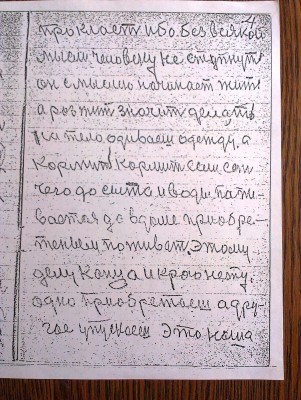 4
про класть ибо. без всякой
мысли человеку не ступнуть
он с мыслию начинает жить
а рожит значит делать
на тело одиваеш одежду, а
кормить кормит сам сам
чего до сыта и воды напи-
вается да вдоме приобре-
тением поживет. Этому
делу конца и краю нету.
одно приобретаеш а дру-
гое упускаеш Это наша